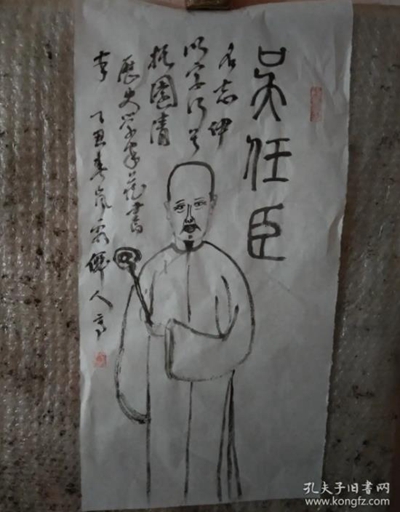 吴任臣
名志伊
以字行号
托园清
历史学家藏书
家 丁丑春
人
孔夫子旧书网
www.kongfz.com